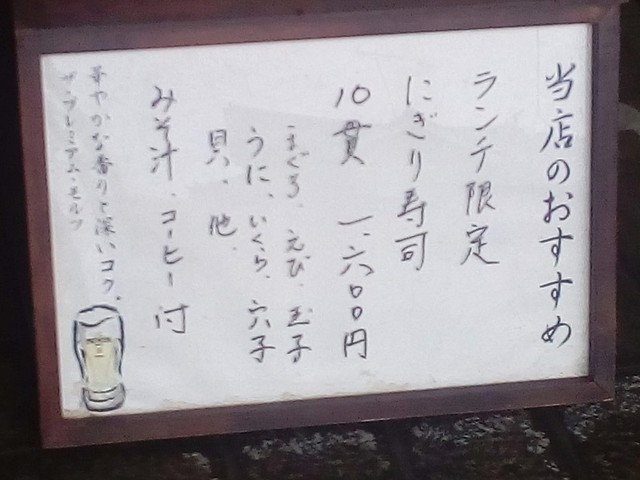 当店のおすすめ
ランチ限定
にぎり寿司
10貫 一、六〇〇円
まぐろ、えび、玉子
うに、いくら、穴子
貝、他、
みそ汁、コーヒー付
華やかな香りと深いコク。
ザ・プレミアム・モルツ